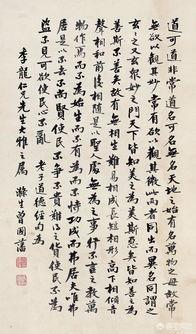 道可道非常道名可名無名天地之始有名萬物之母故常
無欲以觀其妙常有欲以觀其徼此兩者同出而異名同謂之
玄之又玄眾妙之門天下皆知美之為美斯惡矣皆知善為
善斯不善矣故有無相生難易相成長短相形高下相傾音
聲相和前後相隨是以聖人處無為之事行不言之教萬
物作焉而不辭生而不有為而不恃功成而弗居夫唯弗
居是以不去不尚賢使民不爭不貴難得之貨使民不為
盜不見可欲使民心不亂 老子道德經句為
龍仁兄先生大雅之屬 滌生曾國藩